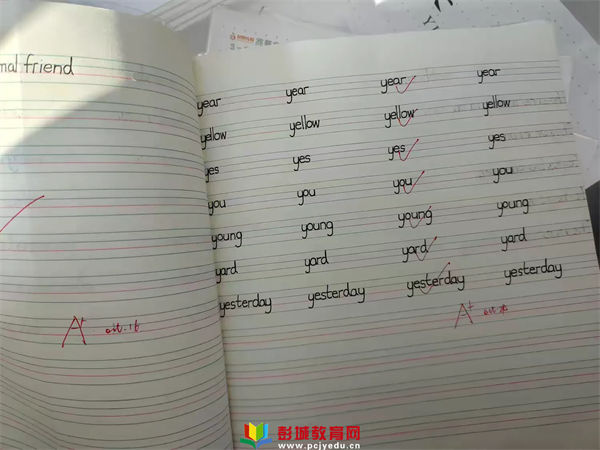 friend
year year year year
yellow yellow yellow yellow
yes yes yes yes
you you you you
young young young young
yard yard yard yard
yesterday yesterday yesterday yesterday
A+
A+
彭城教育网
www.pcjyedu.cn